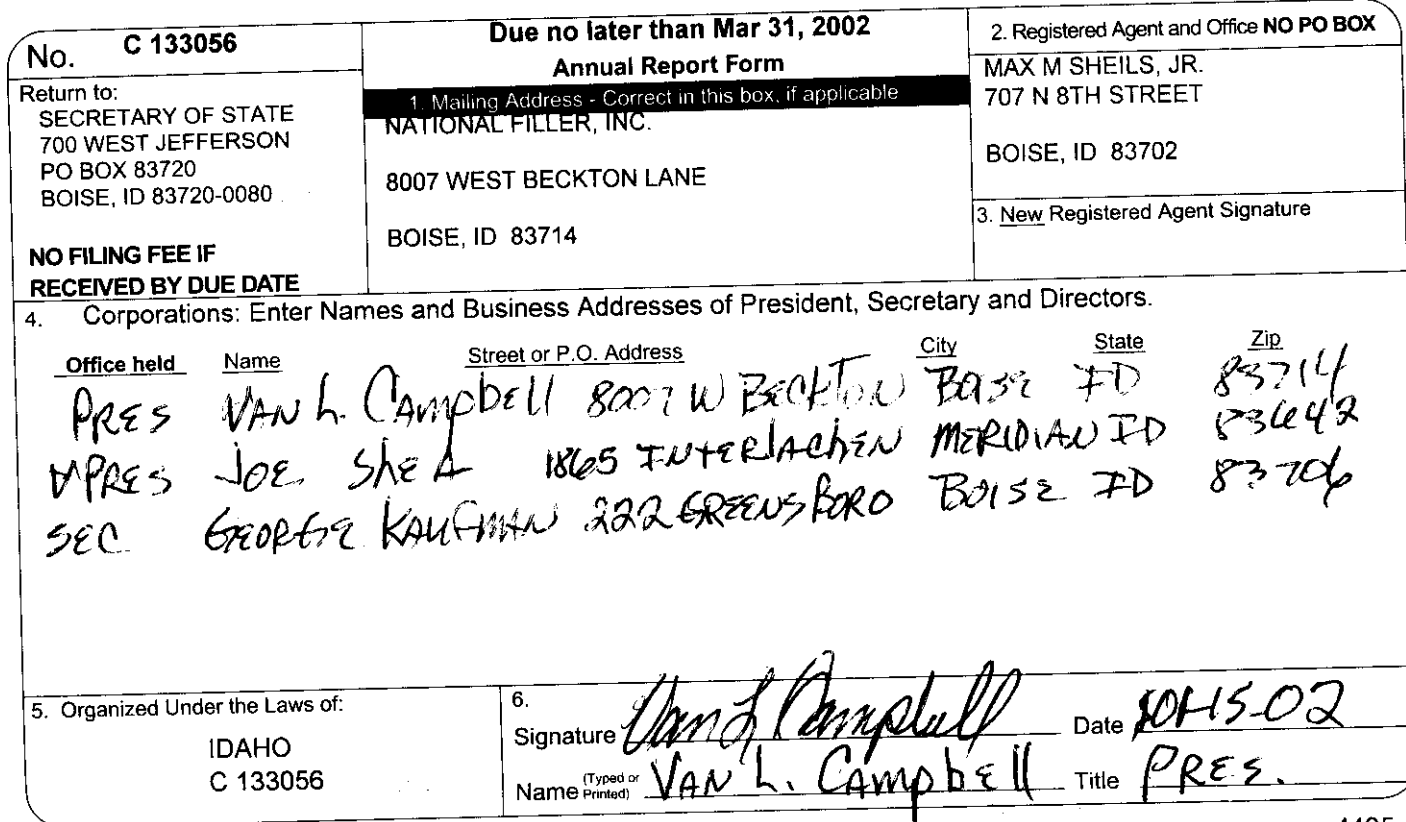 No. C 133056
Return to:
SECRETARY OF STATE
700 WEST JEFFERSON
PO BOX 83720
BOISE, ID 83720-0080
NO FILING FEE IF
RECEIVED BY DUE DATE
Due no later than Mar 31, 2002
Annual Report Form
1. Mailing Address - Correct in this box, if applicable
NATIONAL FILLER, INC.
8007 WEST BECKTON LANE
BOISE, ID 83714
2. Registered Agent and Office NO PO BOX
MAX M SHEILS, JR.
707 N 8TH STREET
BOISE, ID 83702
3. New Registered Agent Signature
4. Corporations: Enter Names and Business Addresses of President, Secretary and Directors.
Office held Name Street or P.O. Address City State Zip
PRES VAN L. CAMpbEll 8007 W BECKTON BOISE ID 83714
VPRES JOE SHEA 1865 INTERlAchEN MERIDIAN ID 83642
SEC GEORGE KAUFMAN 222 GREENSBORO BOISE ID 83706
5. Organized Under the Laws of:
IDAHO
C 133056
6.
Signature Van L Campbell Date
Name (Typed or Printed) VAN L. CAMpbEll Title PRES.